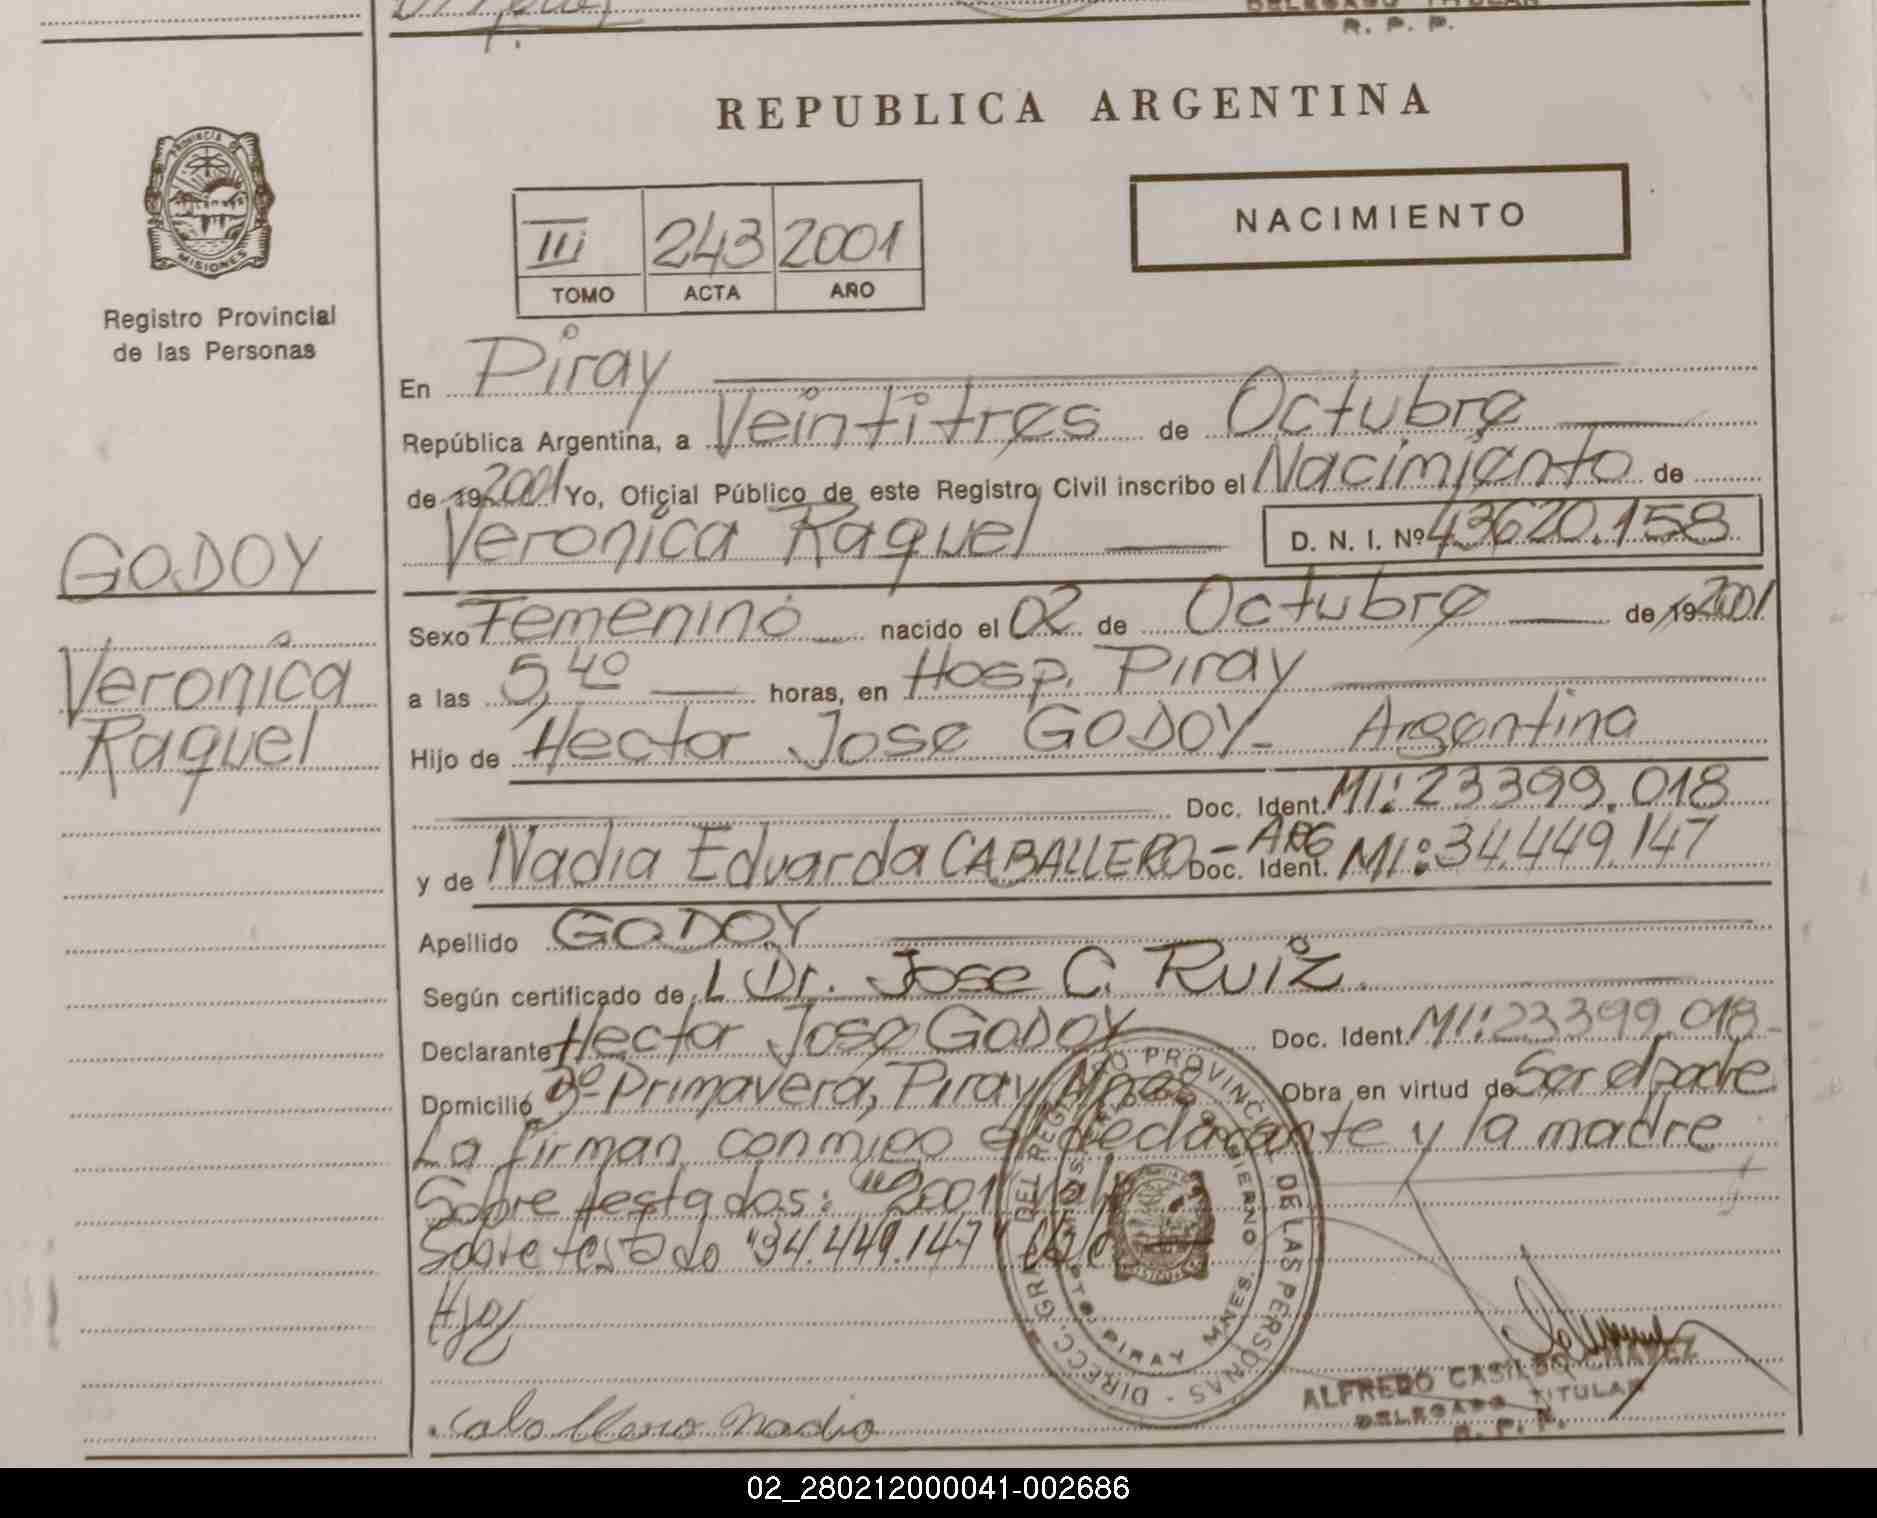 DELEGADO TITULAR
R. P. P.
REPUBLICA ARGENTINA
PROVINCIA DE MISIONES
Registro Provincial
de las Personas
III 243 2001
TOMO ACTA AÑO
NACIMIENTO
En Piray
República Argentina, a Veintitres de Octubre
de 19 2001 Yo, Oficial Público de este Registro Civil inscribo el Nacimiento de
Veronica Raquel D. N. I. Nº 43620.158
GODOY
Veronica
Raquel
Sexo Femenino nacido el 02 de Octubre de 19 2001
a las 5,40 horas, en Hosp. Piray
Hijo de Hector Jose GODOY - Argentina
Doc. Ident. MI: 23399.018
y de Nadia Eduarda CABALLERO - ARG Doc. Ident. MI: 34.449.147
Apellido GODOY
Según certificado de L Dr. Jose C. Ruiz.
Declarante Hector Jose GODOY Doc. Ident. MI: 23399.018-
Domicilio Bº Primavera, Piray Mnes Obra en virtud de Ser el padre
La firman conmigo el declarante y la madre
Sobre testados: "2001" Vale
Sobre testado "34.449.147" Vale
Caballero Nadia
DIRECC. GRAL. DEL REGISTRO PROVINCIAL DE LAS PERSONAS
MINISTERIO DE GOBIERNO
PTO. PIRAY MNES.
ALFREDO CASILDO
DELEGADO TITULAR
R. P. P.
02_280212000041-002686